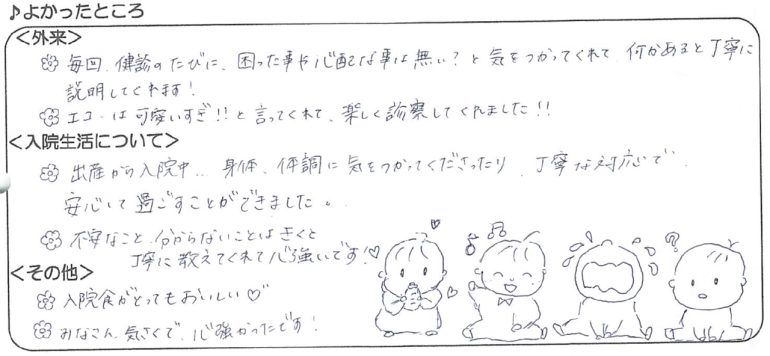 ♪よかったところ
<外来>
毎回、健診のたびに、困った事や心配な事は無い?と気をつかってくれて、何かあると丁寧に
説明してくれます!
エコーは可愛いすぎ!!と言ってくれて、楽しく診察してくれました!!
<入院生活について>
出産から入院中… 身体、体調に気をつかってくださったり、丁寧な対応で、
安心して過ごすことができました。
不安なこと、分からないことはきくと
丁寧に教えてくれて心強いです!♡
<その他>
入院食がとってもおいしい♡
みなさん、気さくで、心強かったです!